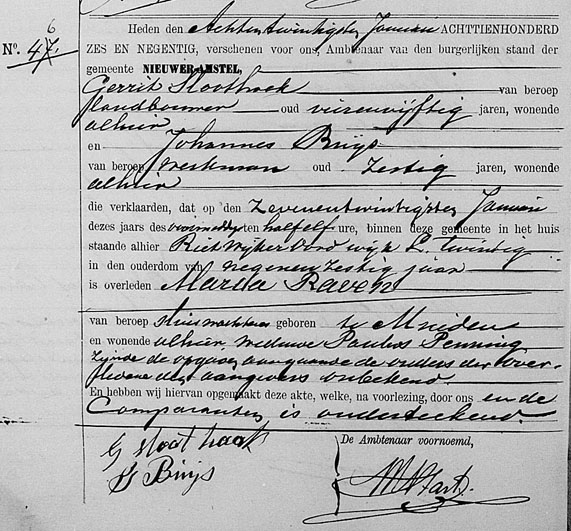 6
Nº. 47.
Heden den Achtentwintigsten Januari ACHTTIENHONDERD
ZES EN NEGENTIG, verschenen voor ons, Ambtenaar van den burgerlijken stand der
gemeente NIEUWER-AMSTEL,
Gerrit Slothaak van beroep
landbouwer oud vierenvijftig jaren, wonende
alhier
en Johannes Buijs
van beroep werkman oud zestig jaren, wonende
alhier
die verklaarden, dat op den Zevenentwintigsten Januari
dezes jaars des voormiddags ten half elf ure, binnen deze gemeente in het huis
staande alhier Rietwijkeroord wijk L. twintig
in den ouderdom van negenenzestig jaar
is overleden Marda Raven
van beroep geboren te Muiden
en wonende alhier weduwe Paulus Penning
zijnde de opgaven aangaande de ouders der over-
ledene den aangevers onbekend.
En hebben wij hiervan opgemaakt deze akte, welke, na voorlezing, door ons en de
Comparanten is onderteekend.
De Ambtenaar voornoemd,
G Slothaak
J Buijs